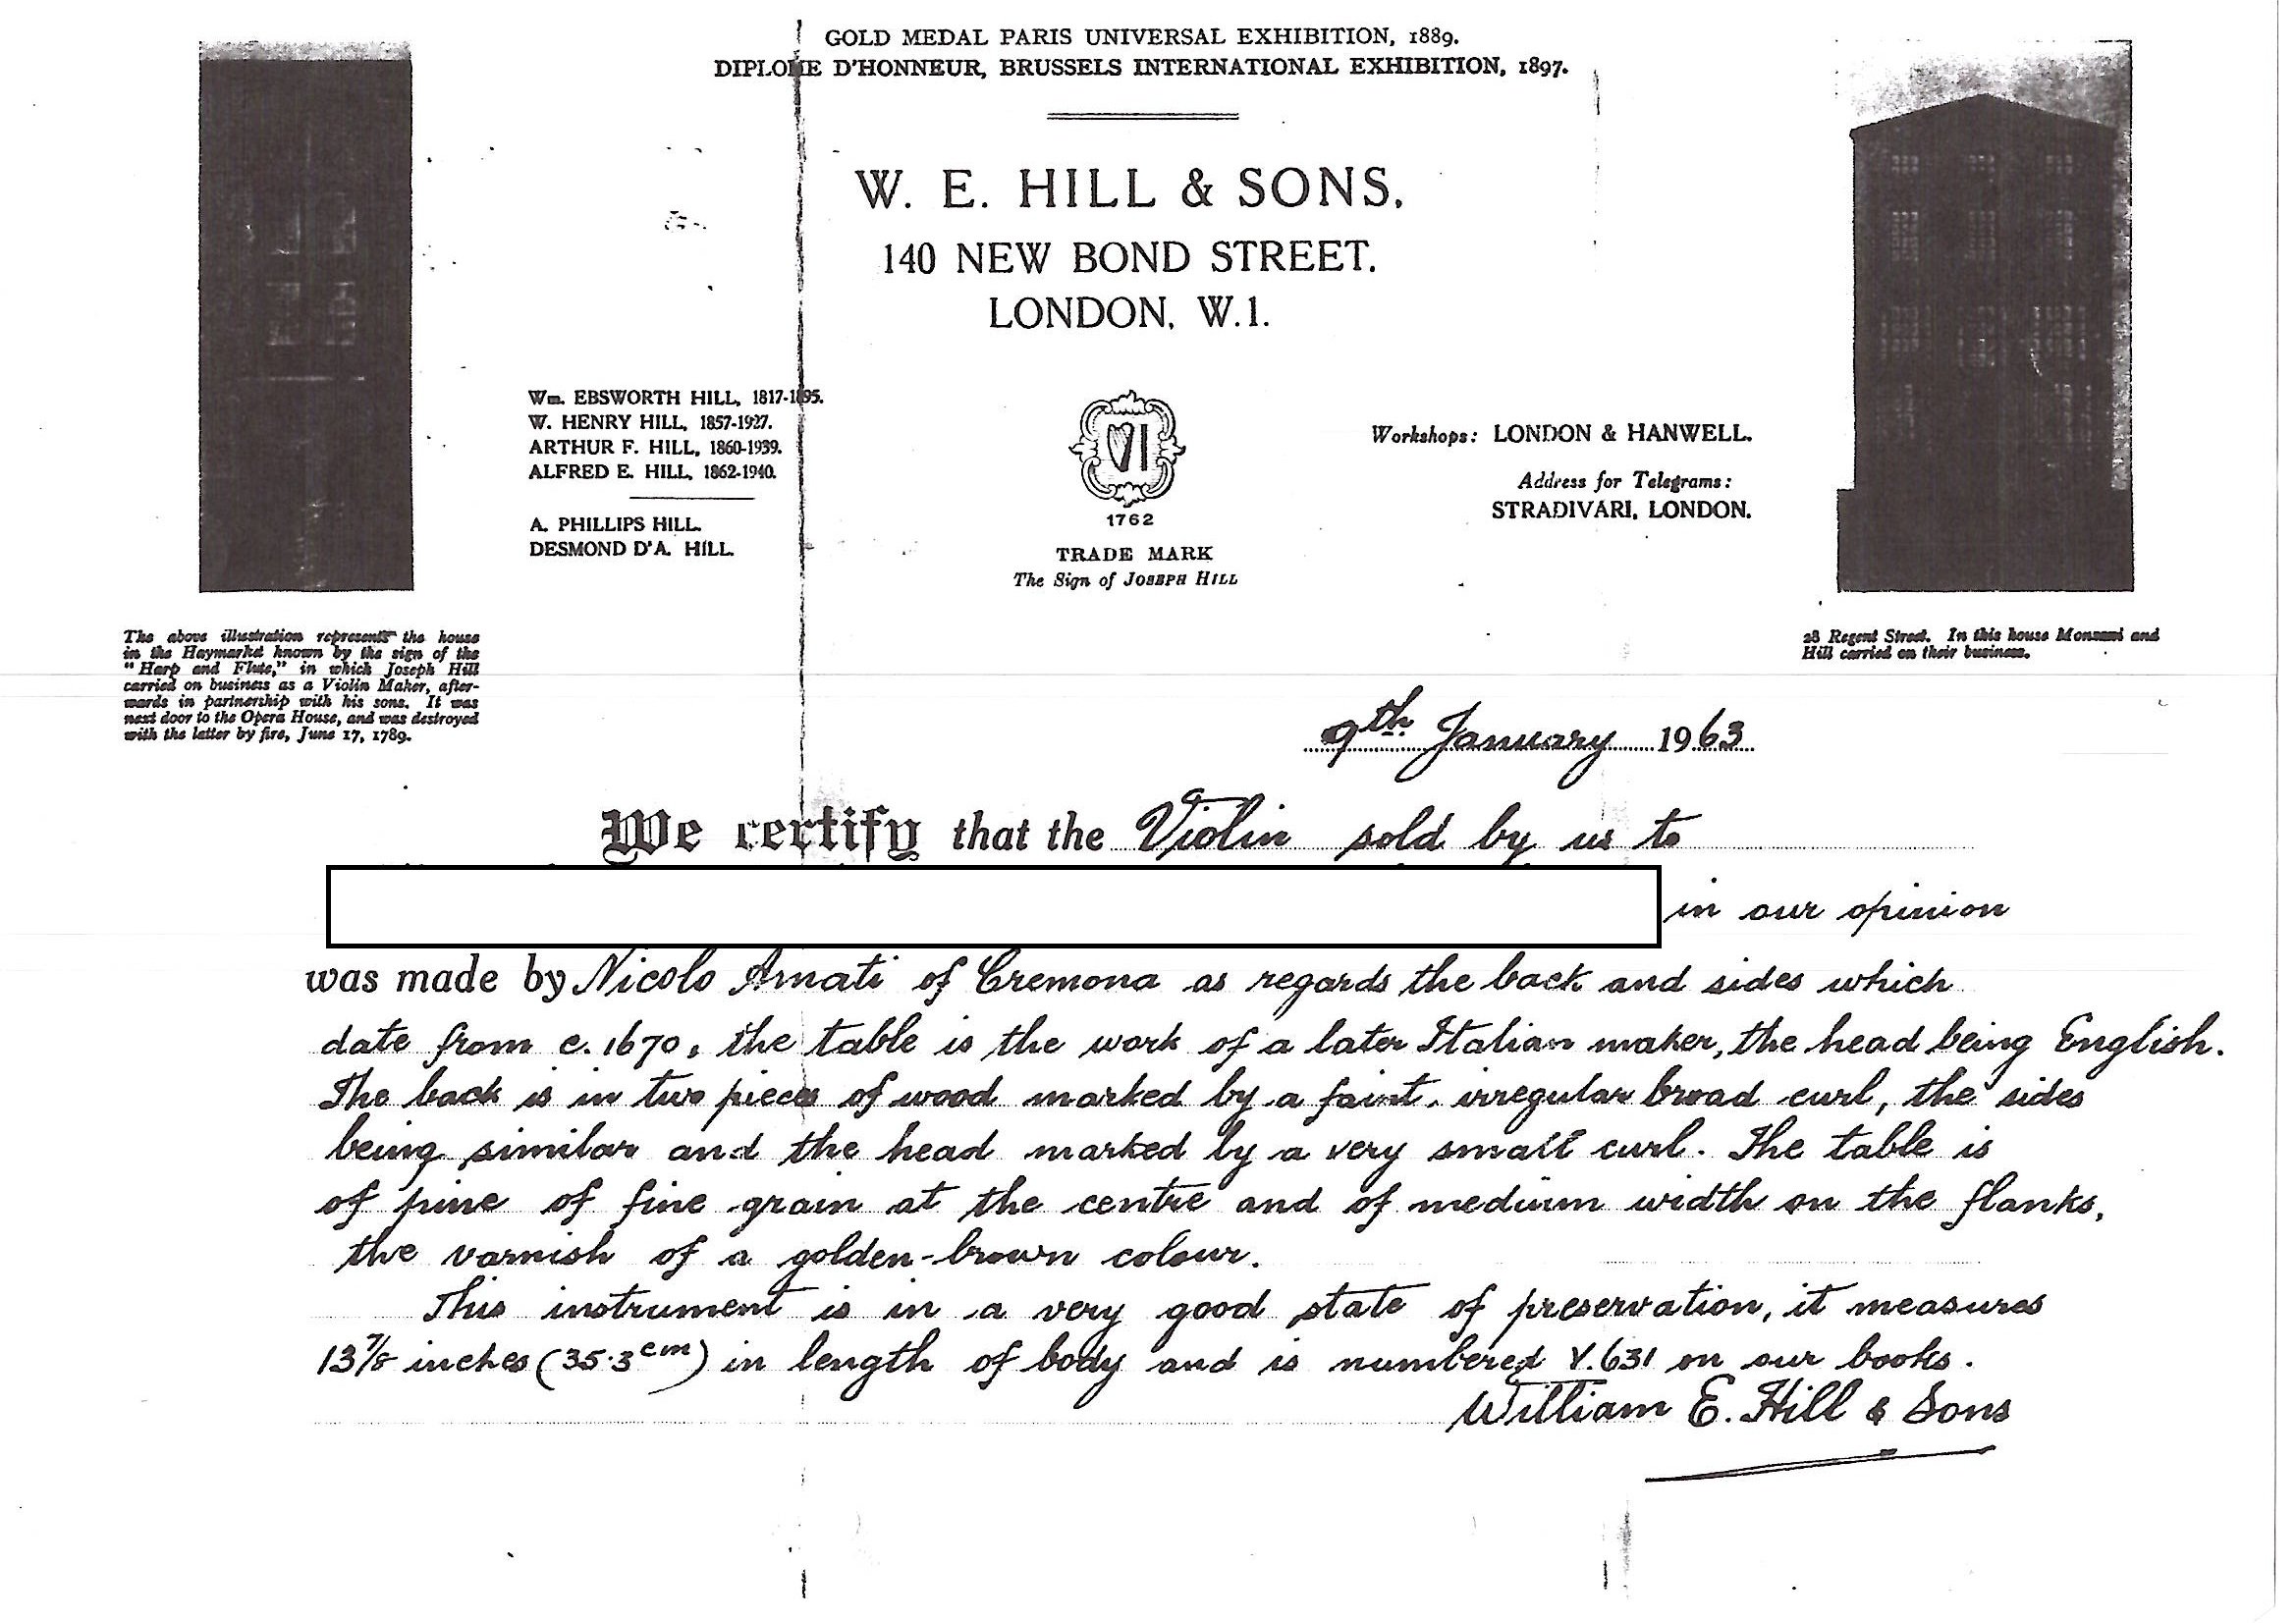 GOLD MEDAL PARIS UNIVERSAL EXHIBITION, 1889.
DIPLOME D'HONNEUR, BRUSSELS INTERNATIONAL EXHIBITION, 1897.
W. E. HILL & SONS,
140 NEW BOND STREET.
LONDON, W.1.
Wm. EBSWORTH HILL, 1817-1895.
W. HENRY HILL, 1857-1927.
ARTHUR F. HILL, 1860-1939.
ALFRED E. HILL, 1862-1940.
A. PHILLIPS HILL.
DESMOND D'A. HILL.
1762
TRADE MARK
The Sign of JOSEPH HILL
Workshops: LONDON & HANWELL.
Address for Telegrams:
STRADIVARI, LONDON.
The above illustration represents the house
in the Haymarket known by the sign of the
"Harp and Flute," in which Joseph Hill
carried on business as a Violin Maker, after-
wards in partnership with his sons. It was
next door to the Opera House, and was destroyed
with the latter by fire, June 17, 1789.
28 Regent Street. In this house Monzani and
Hill carried on their business.
9th January 1963
We certify that the Violin sold by us to
in our opinion
was made by Nicolo Amati of Cremona as regards the back and sides which
date from c. 1670, the table is the work of a later Italian maker, the head being English.
The back is in two pieces of wood marked by a faint irregular broad curl, the sides
being similar and the head marked by a very small curl. The table is
of pine of fine grain at the centre and of medium width on the flanks,
the varnish of a golden-brown colour.
This instrument is in a very good state of preservation, it measures
13 7/8 inches (35.3 cm) in length of body and is numbered Y.631 on our books.
William E. Hill & Sons